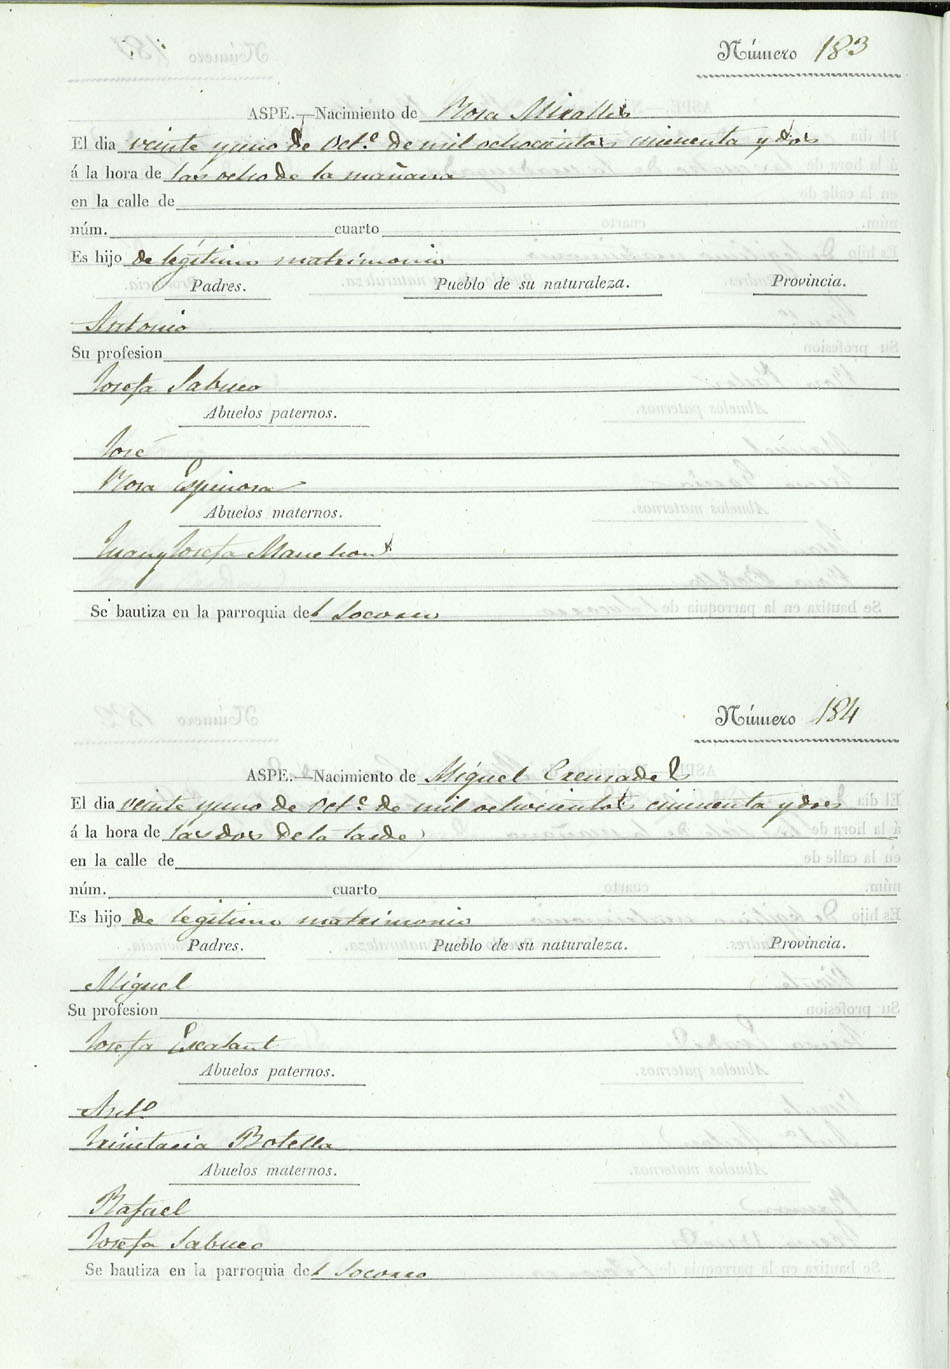 Número 183
ASPE.—Nacimiento de Rosa Miralles
El dia veinte y uno de Oct.e de mil ochocientos cincuenta y dos
á la hora de las ocho de la mañana
en la calle de
núm. cuarto
Es hijo de legítimo matrimonio
Padres. Pueblo de su naturaleza. Provincia.
Antonio
Su profesion
Josefa Sabuco
Abuelos paternos.
José
Rosa Espinosa
Abuelos maternos.
Juan y Josefa Manchon
Se bautiza en la parroquia del Socorro
Número 184
ASPE.—Nacimiento de Miguel Cremades
El dia veinte y uno de Oct.e de mil ochocientos cincuenta y dos
á la hora de las dos de la tarde
en la calle de
núm. cuarto
Es hijo de legitimo matrimonio
Padres. Pueblo de su naturaleza. Provincia.
Miguel
Su profesion
Josefa Escalant
Abuelos paternos.
Ant.o
Trinitaria Botella
Abuelos maternos.
Rafael
Josefa Sabuco
Se bautiza en la parroquia del Socorro